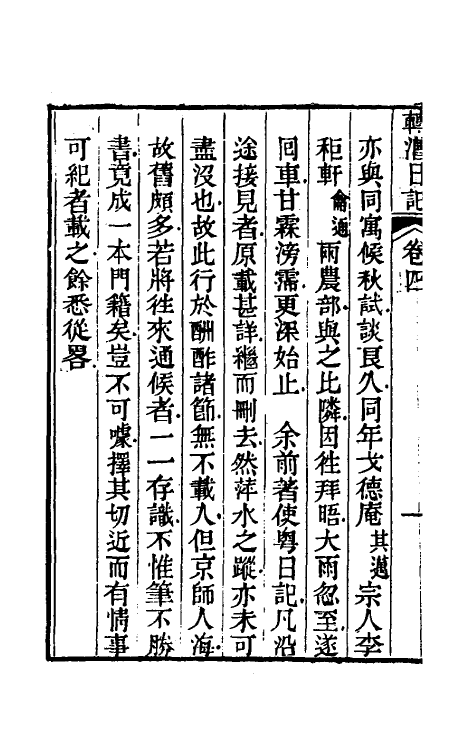 轉漕日記 卷四 一
亦與同寓候秋試談良久同年戈德庵其邁宗人李
秬軒龠通兩農部與之比隣因徃拜晤大雨忽至遂
囘車甘霖滂霈更深始止　余前著使粤日記凡沿
途接見者原載甚詳繼而刪去然萍水之蹤亦未可
盡沒也故此行於酬酢諸節無不載入但京師人海
故舊頗多若將徃來通候者一一存識不惟筆不勝
書竟成一本門籍矣豈不可噱擇其切近而有情事
可紀者載之餘悉從畧